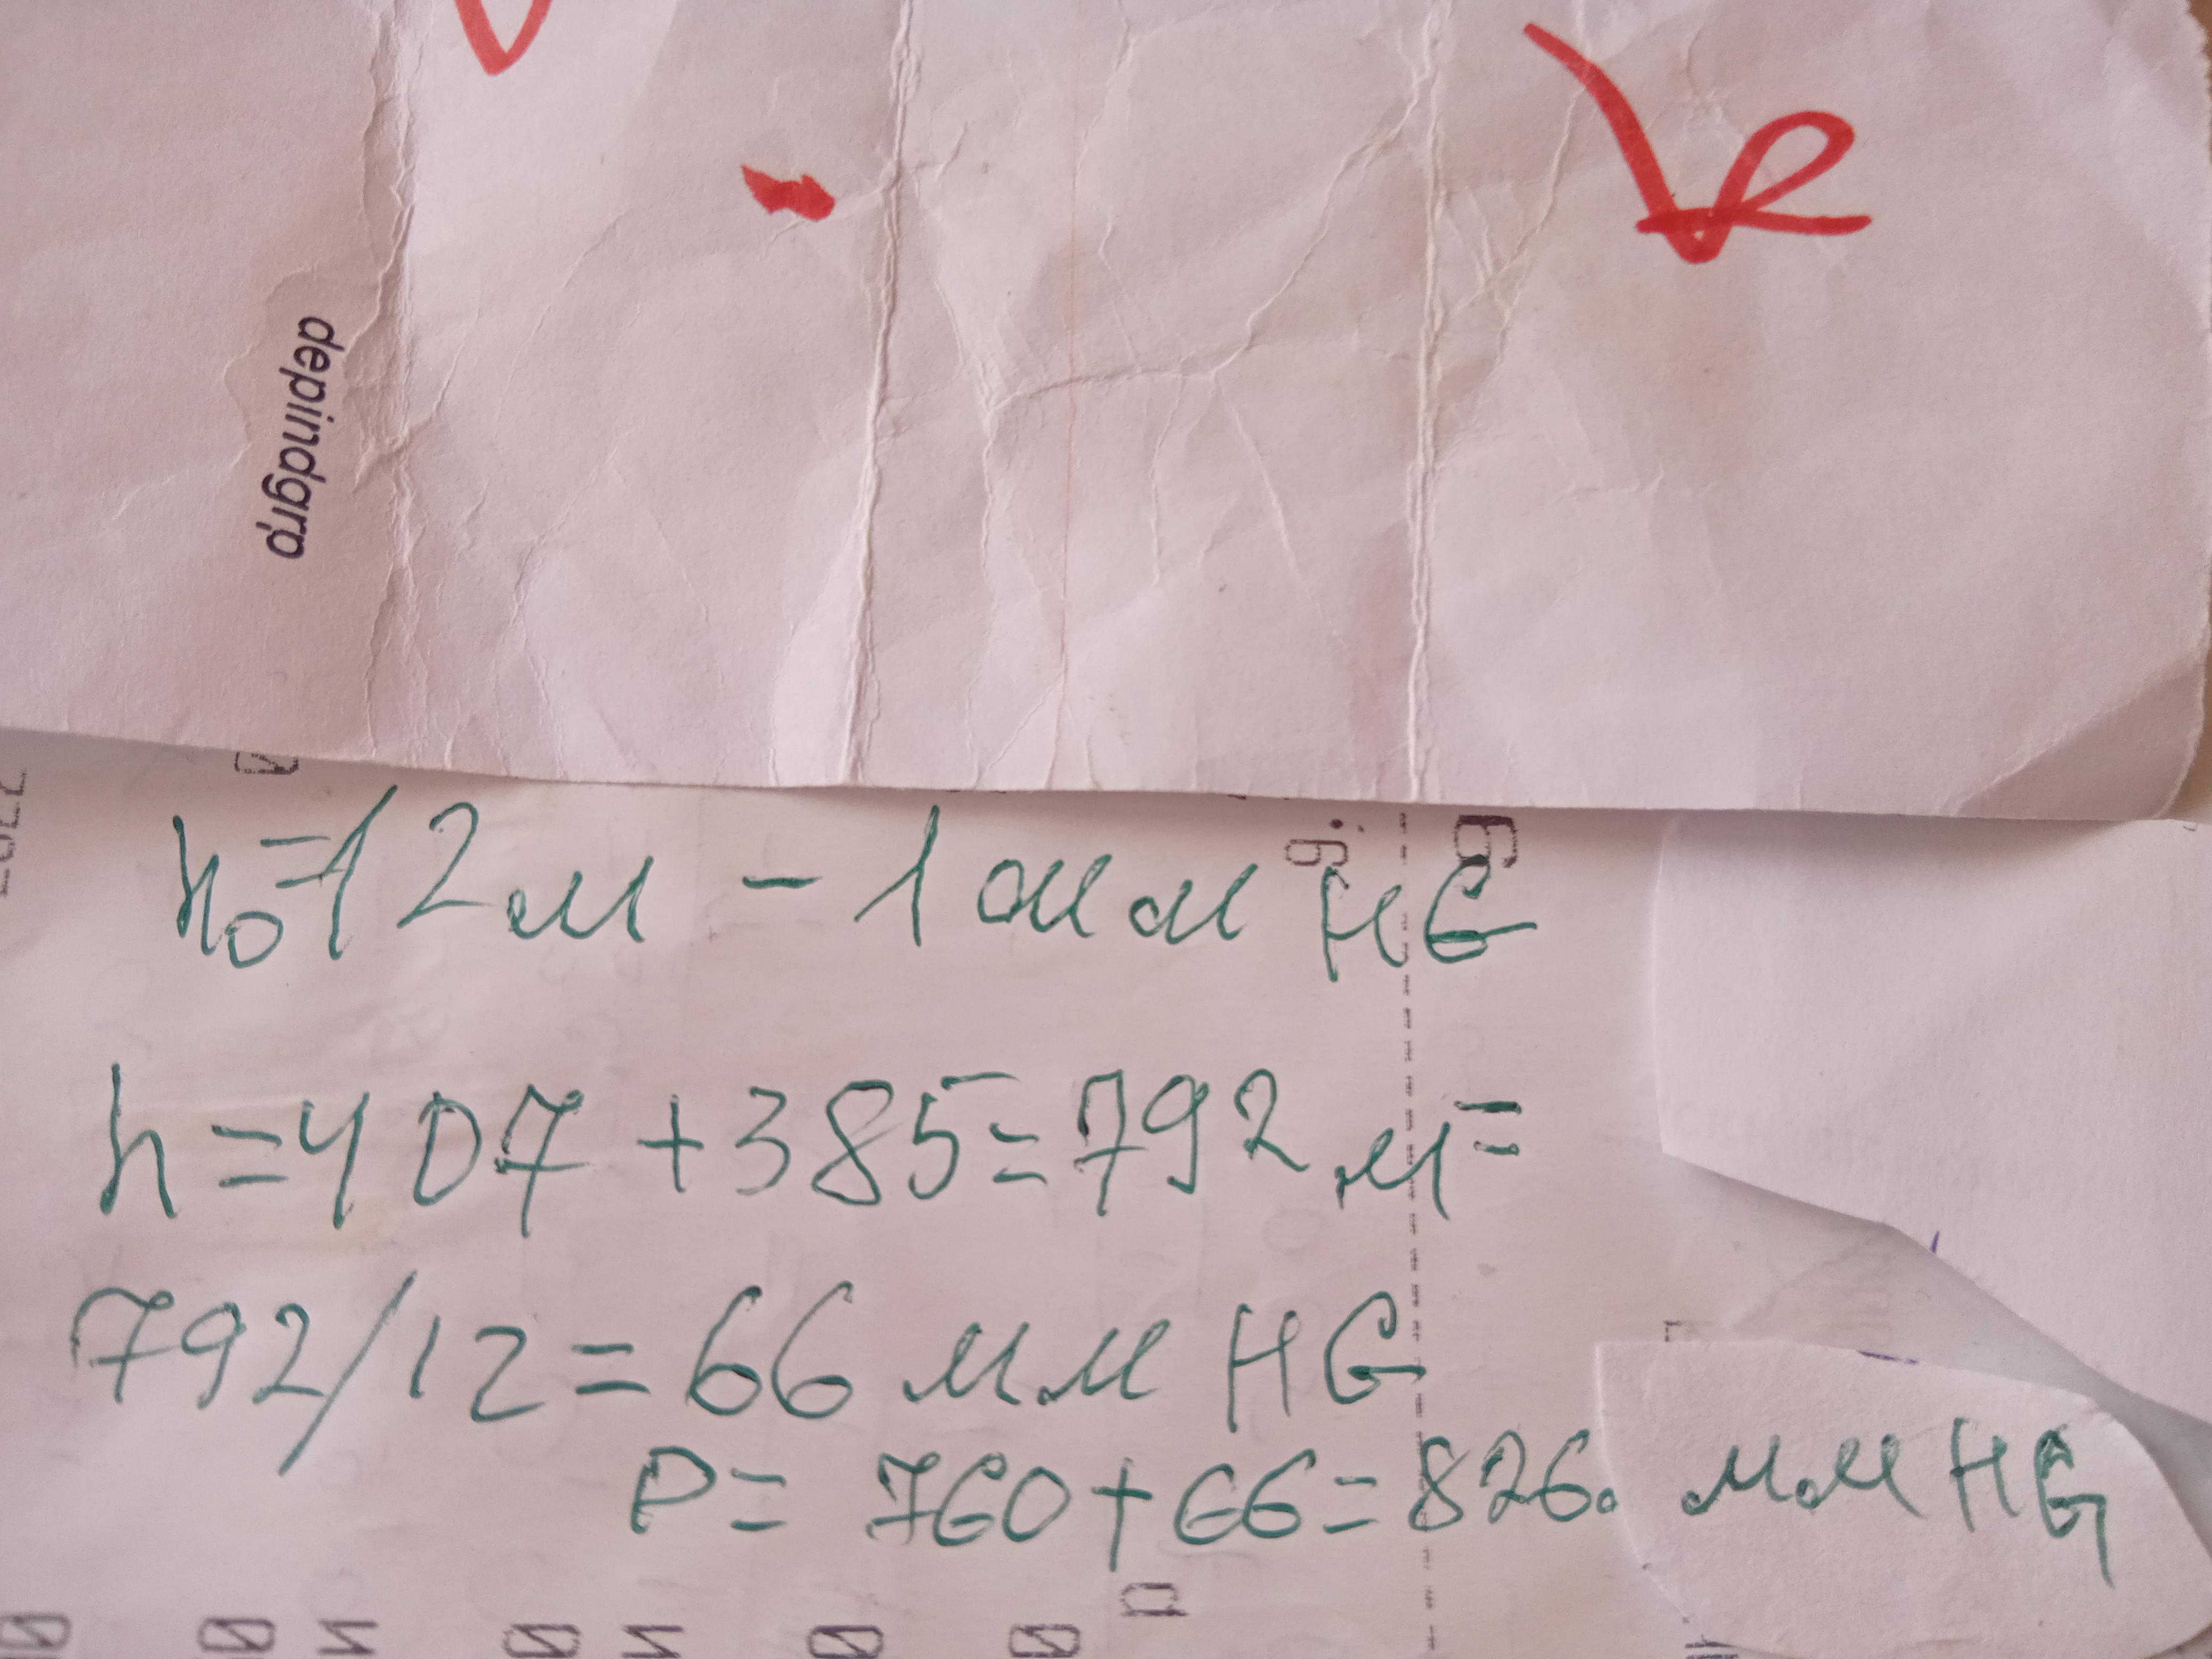 depindgrp
h₀=12м - 1 мм HG
h=407+385=792 м=
792/12=66 мм HG
P= 760+66=826. мм HG